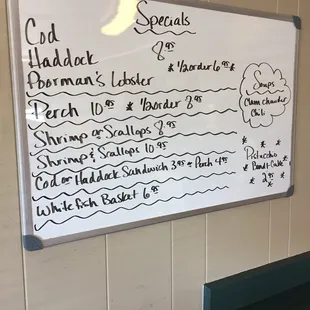 Specials
Cod
Haddock 8.95
Poorman's Lobster * 1/2 order 6.95 *
Perch 10.95 * 1/2 order 8.95
Shrimp or Scallops 8.95
Shrimp & Scallops 10.95
Cod or Haddock Sandwich 3.95 or Perch 4.95
White fish Basket 6.95
Soups
Clam chowder
Chili
Pistachio
Bundt-Cake
2.95